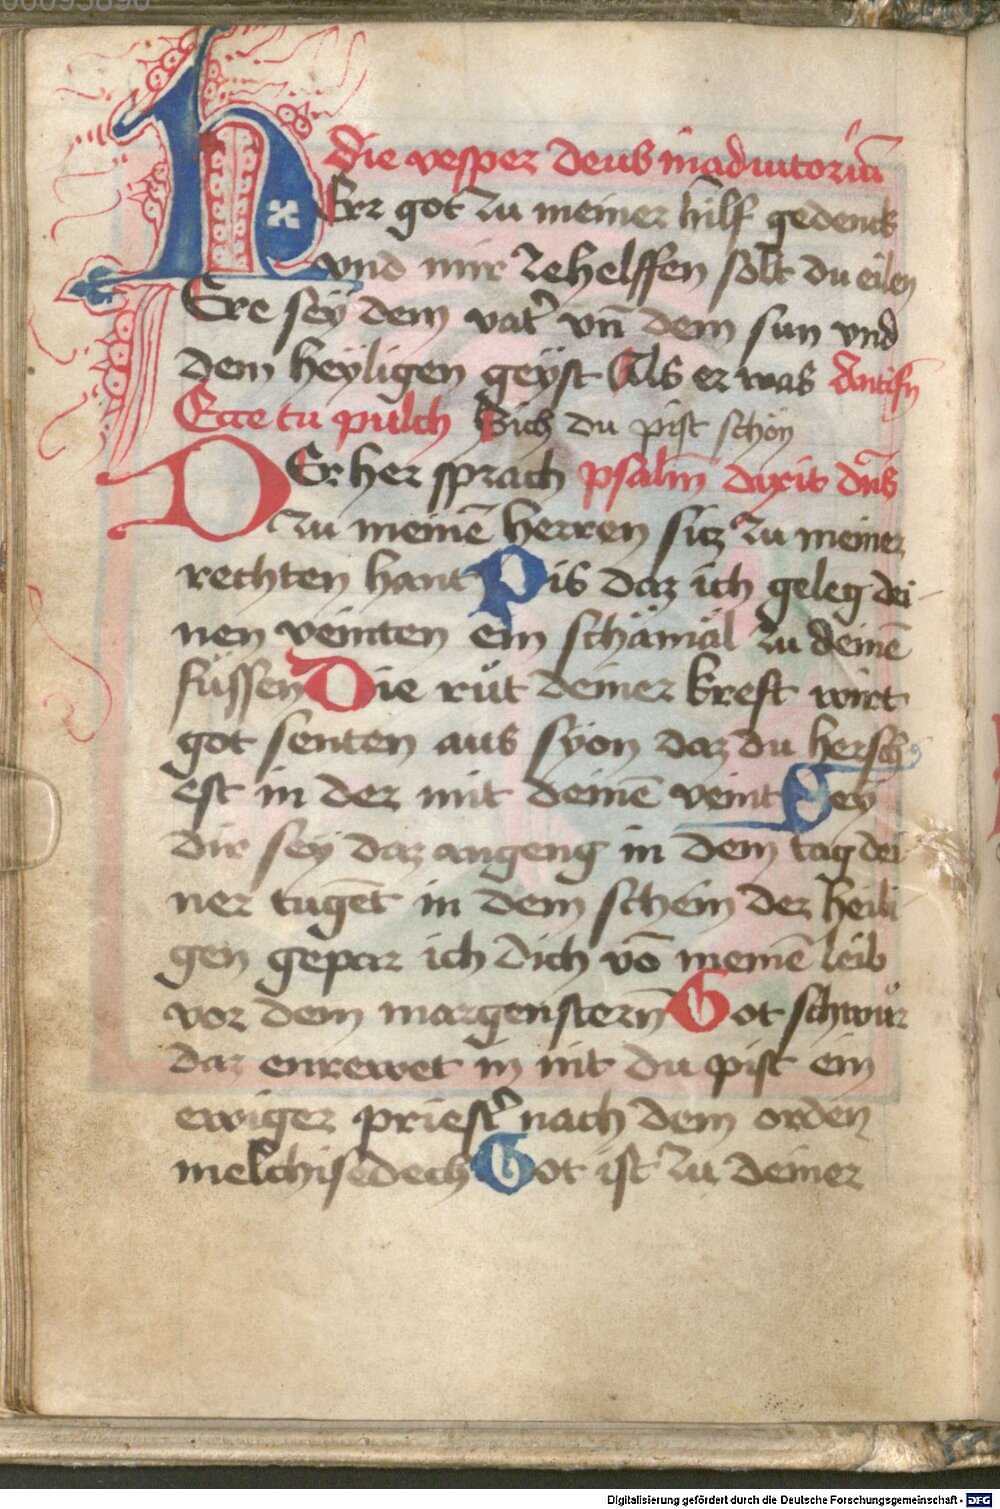 die vesper deus in adiutoriū
HErr got zu meiner hilf gedenck
vnd mir zehelffen solt du eilen
Ere sey dem vat' vn̄ dem sun vnd
dem heyligen geyst Als er was Antifn
Ecce tu pulch Sich du pist schon
DEr her sprach psalm̄ dixit dn̄s
zu meinē herren sicz zu meiner
rechten hant Pis daz ich geleg dei-
nen veinten ein schämäl zu deinē
füssen Die růt deiner kreft wirt
got senten aus syon daz du hersch
est in der mit deinē veint Bey
dir sey daz angeng in dem tag dei
ner tugēt in dem schein der heili
gen gepar ich dich vō meinē leib
vor dem margenstern̄ Got schwůr
daz enrewet in nit du pist ein
ewiger priest' nach dem orden
melchisedech Got ist zu deiner
Digitalisierung gefördert durch die Deutsche Forschungsgemeinschaft - DFG